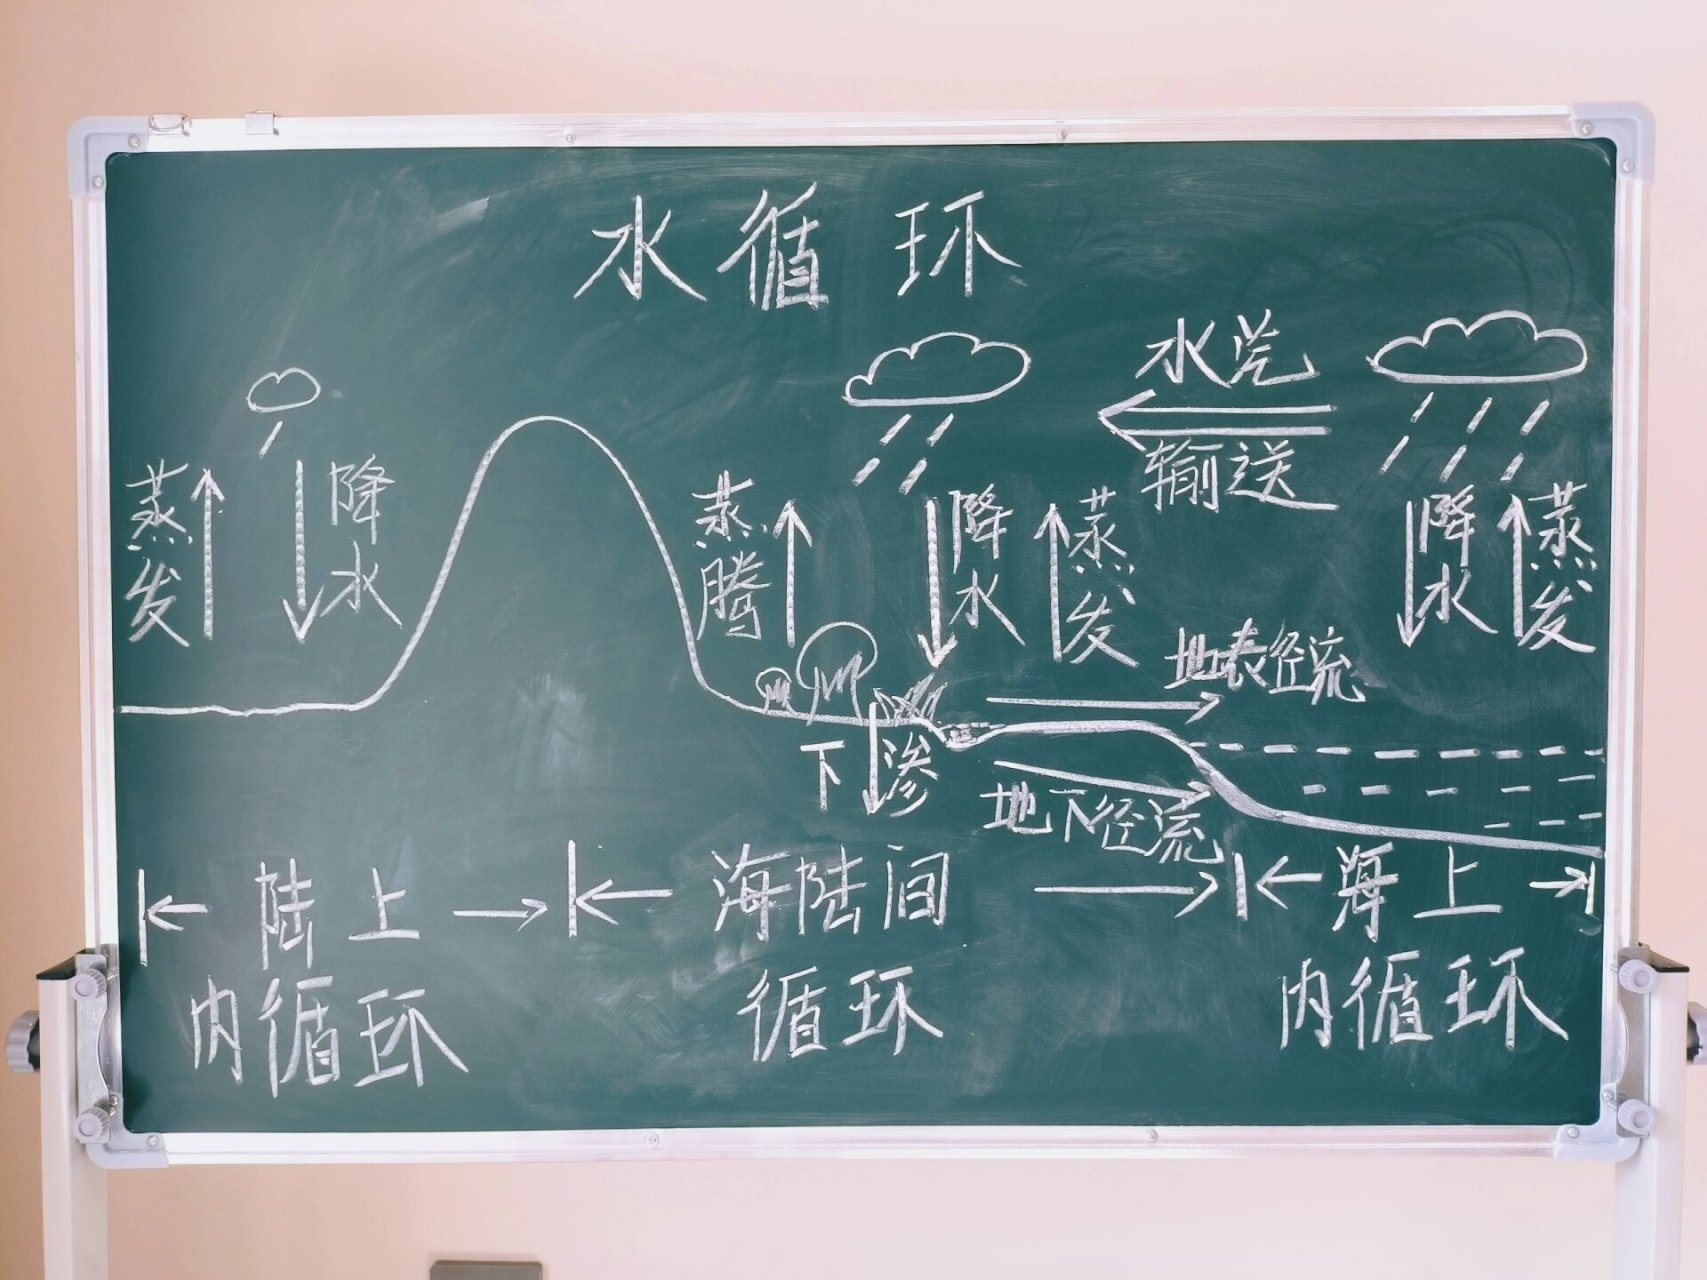 水循环
水汽
输送
蒸发
降水
蒸腾
降水
蒸发
降水
蒸发
地表径流
下渗
地下径流
陆上
内循环
海陆间
循环
海上
内循环